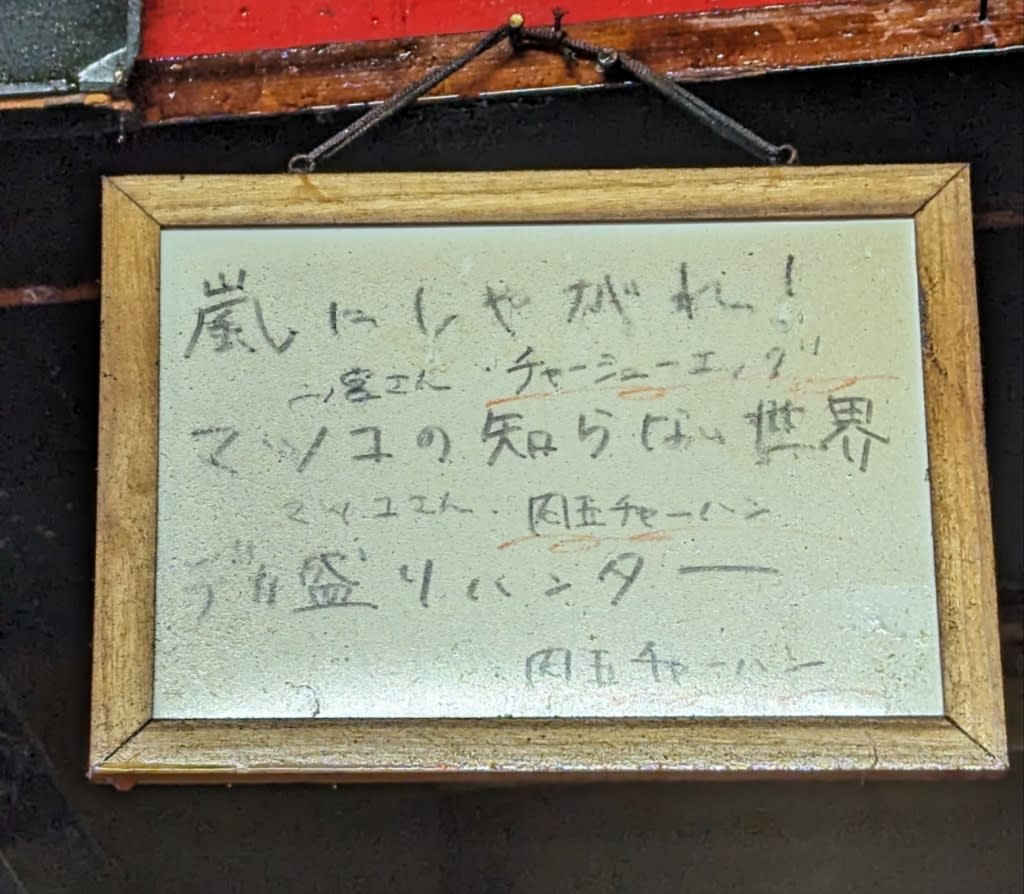 嵐にしやがれ!
二宮さん・チャーシューエッグ
マツコの知らない世界
マツコさん・肉玉チャーハン
デカ盛りハンター
肉玉チャーハン